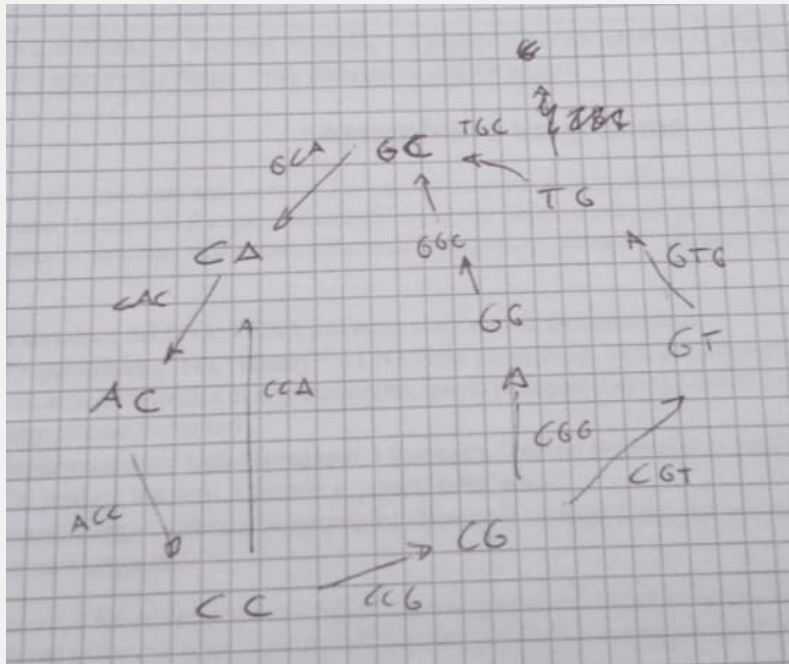 TGC
GCA GC
TG
CA GGC GTG
CAC GG
GT
AC CCA
CGG
CGT
ACC
CG
CC CCG